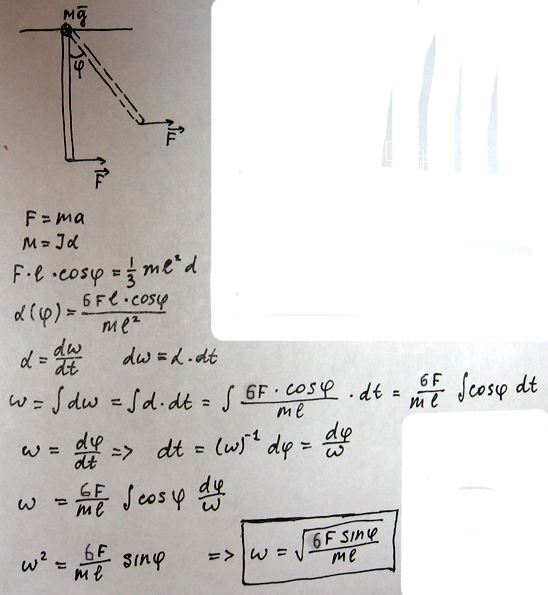 Mg̅
φ
F⃗
F⃗
F = ma
M = Jα
F·l·cosφ = 1/3 ml²α
α(φ) = 6Fl·cosφ / ml²
α = dω/dt dω = α·dt
ω = ∫dω = ∫α·dt = ∫ 6F·cosφ / ml · dt = 6F/ml ∫cosφ dt
ω = dφ/dt => dt = (ω)⁻¹ dφ = dφ/ω
ω = 6F/ml ∫cosφ dφ/ω
ω² = 6F/ml sinφ => ω = √(6F sinφ / ml)